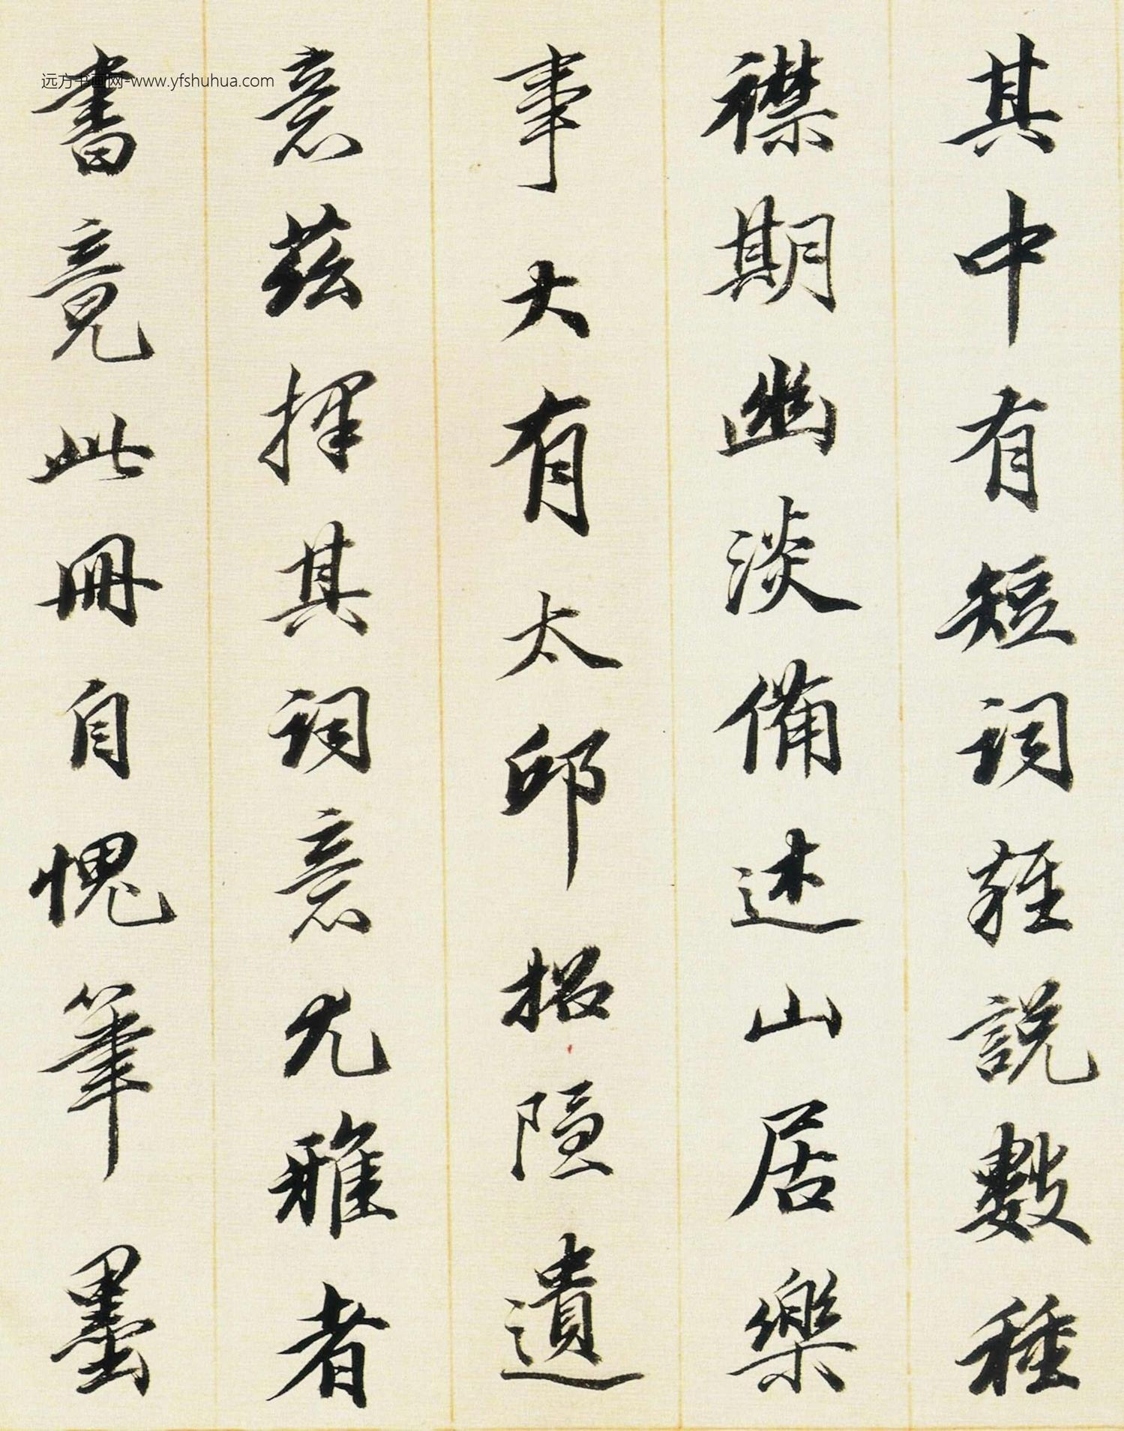 其中有短词雜說數種
襟期幽淡備述山居樂
事大有太邱招隱遺
意兹擇其词意尤雅者
書竟此冊自愧筆墨
远方书画网-www.yfshuhua.com